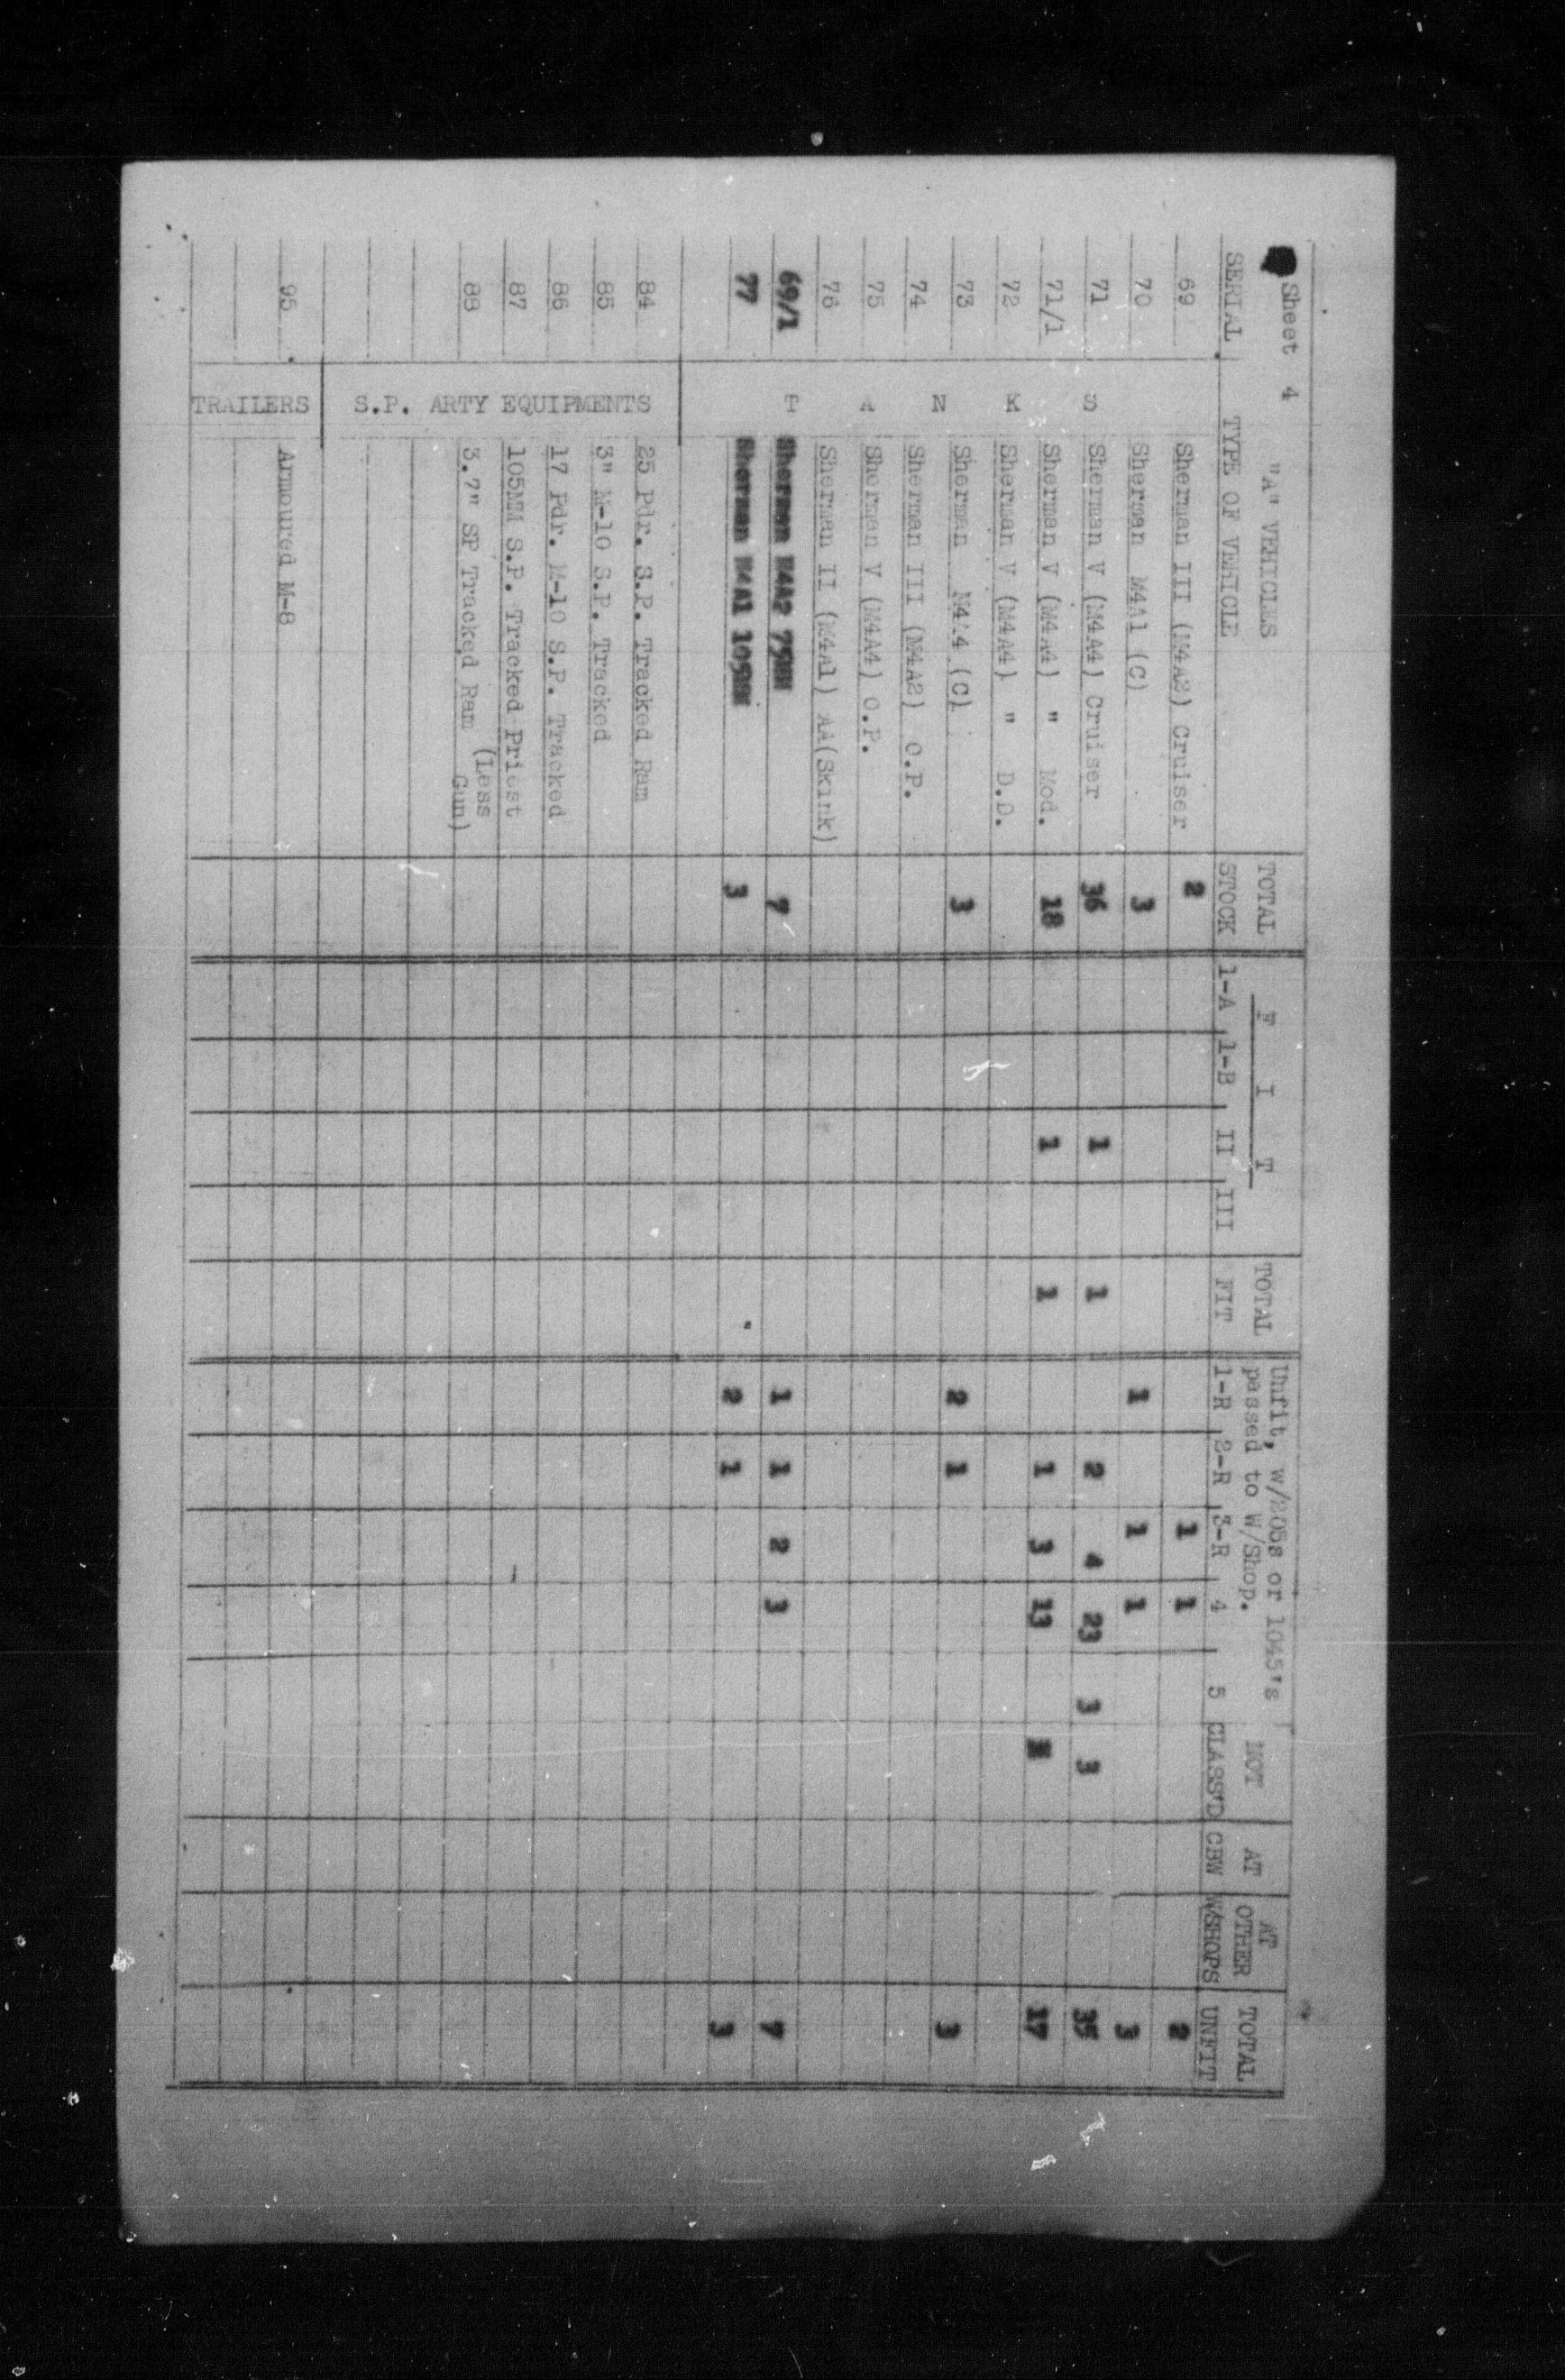 Sheet 4 "A" VEHICLES
TOTAL F I T TOTAL Unfit, w/205s or 1045's passed to W/Shop. NOT AT AT OTHER TOTAL
SERIAL TYPE OF VEHICLE STOCK 1-A 1-B II III FIT 1-R 2-R 3-R 4 5 CLASS'D CBW W/SHOPS UNFIT
TANKS
69 Sherman III (M4A2) Cruiser 2 1 1 2
70 Sherman M4A1 (C) 3 1 1 1 3
71 Sherman V (M4A4) Cruiser 36 1 1 2 4 23 3 3 35
71/1 Sherman V (M4A4) " Mod. 18 1 1 1 3 13 17
72 Sherman V (M4A4) " D.D.
73 Sherman M4A4 (C) 3 2 1 3
74 Sherman III (M4A2) O.P.
75 Sherman V (M4A4) O.P.
76 Sherman II (M4A1) AA(Skink)
69/1 Sherman M4A2 75MM 7 1 1 2 3 7
77 Sherman M4A1 105MM 3 2 1 3
S.P. ARTY EQUIPMENTS
84 25 Pdr. S.P. Tracked Ram
85 3" M-10 S.P. Tracked
86 17 Pdr. M-10 S.P. Tracked
87 105MM S.P. Tracked Priest
88 3.7" SP Tracked Ram (Less Gun)
TRAILERS
95 Armoured M-8